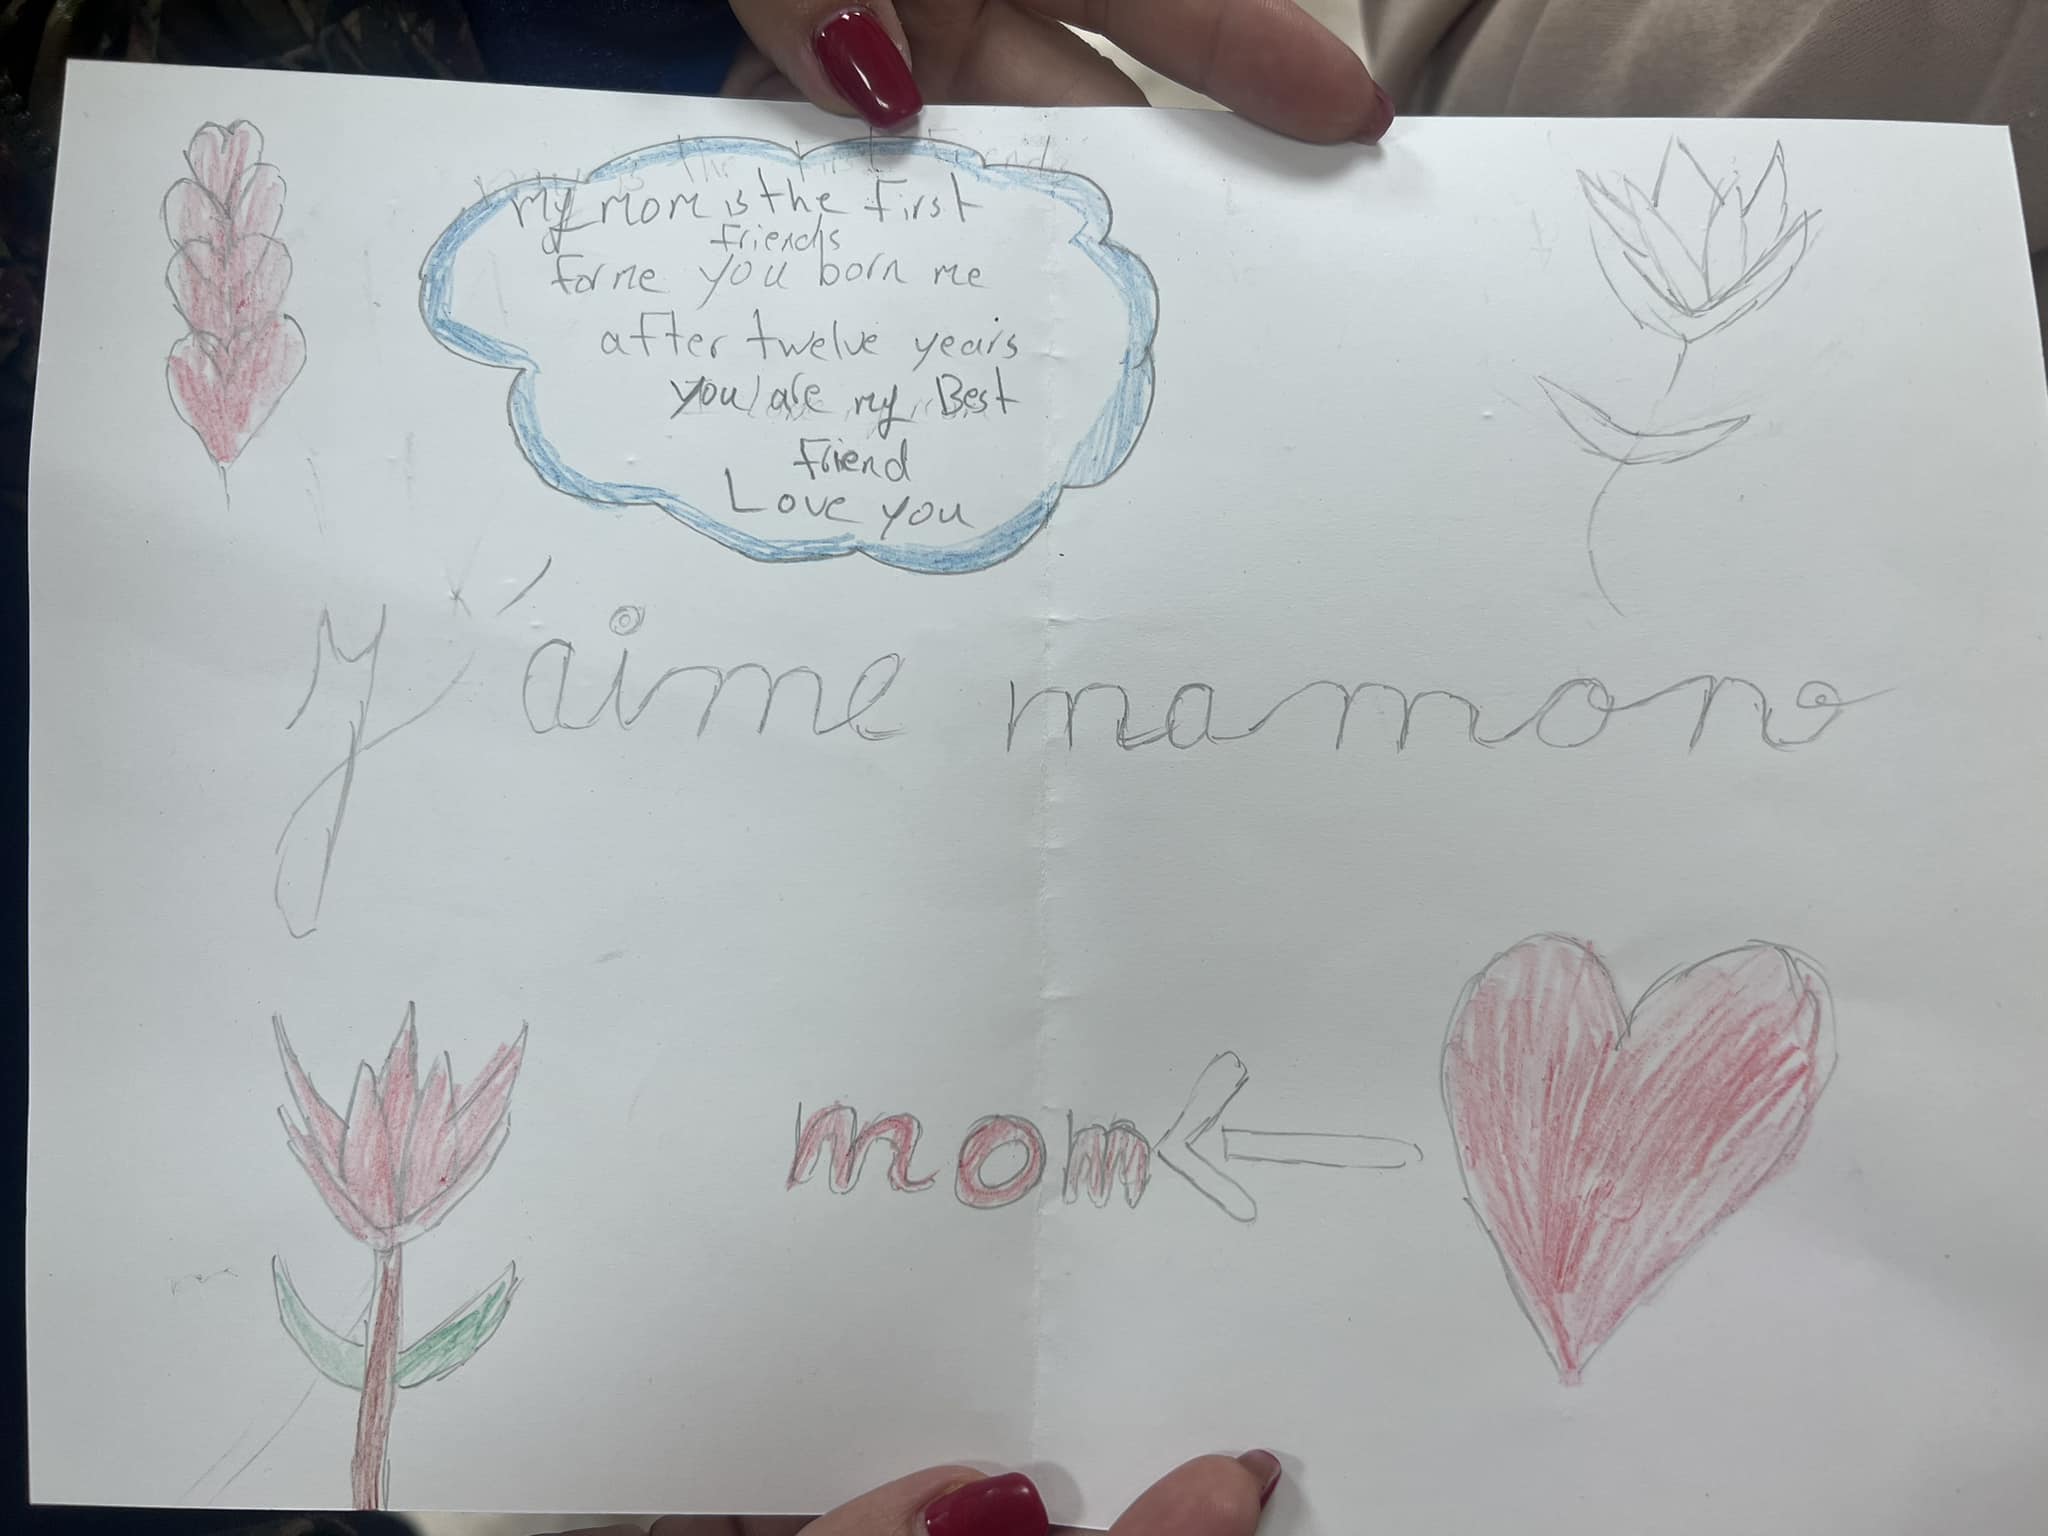 my mom is the first
friends
for me you born me
after twelve years
you are my Best
friend
Love you
j'aime mamono
mom